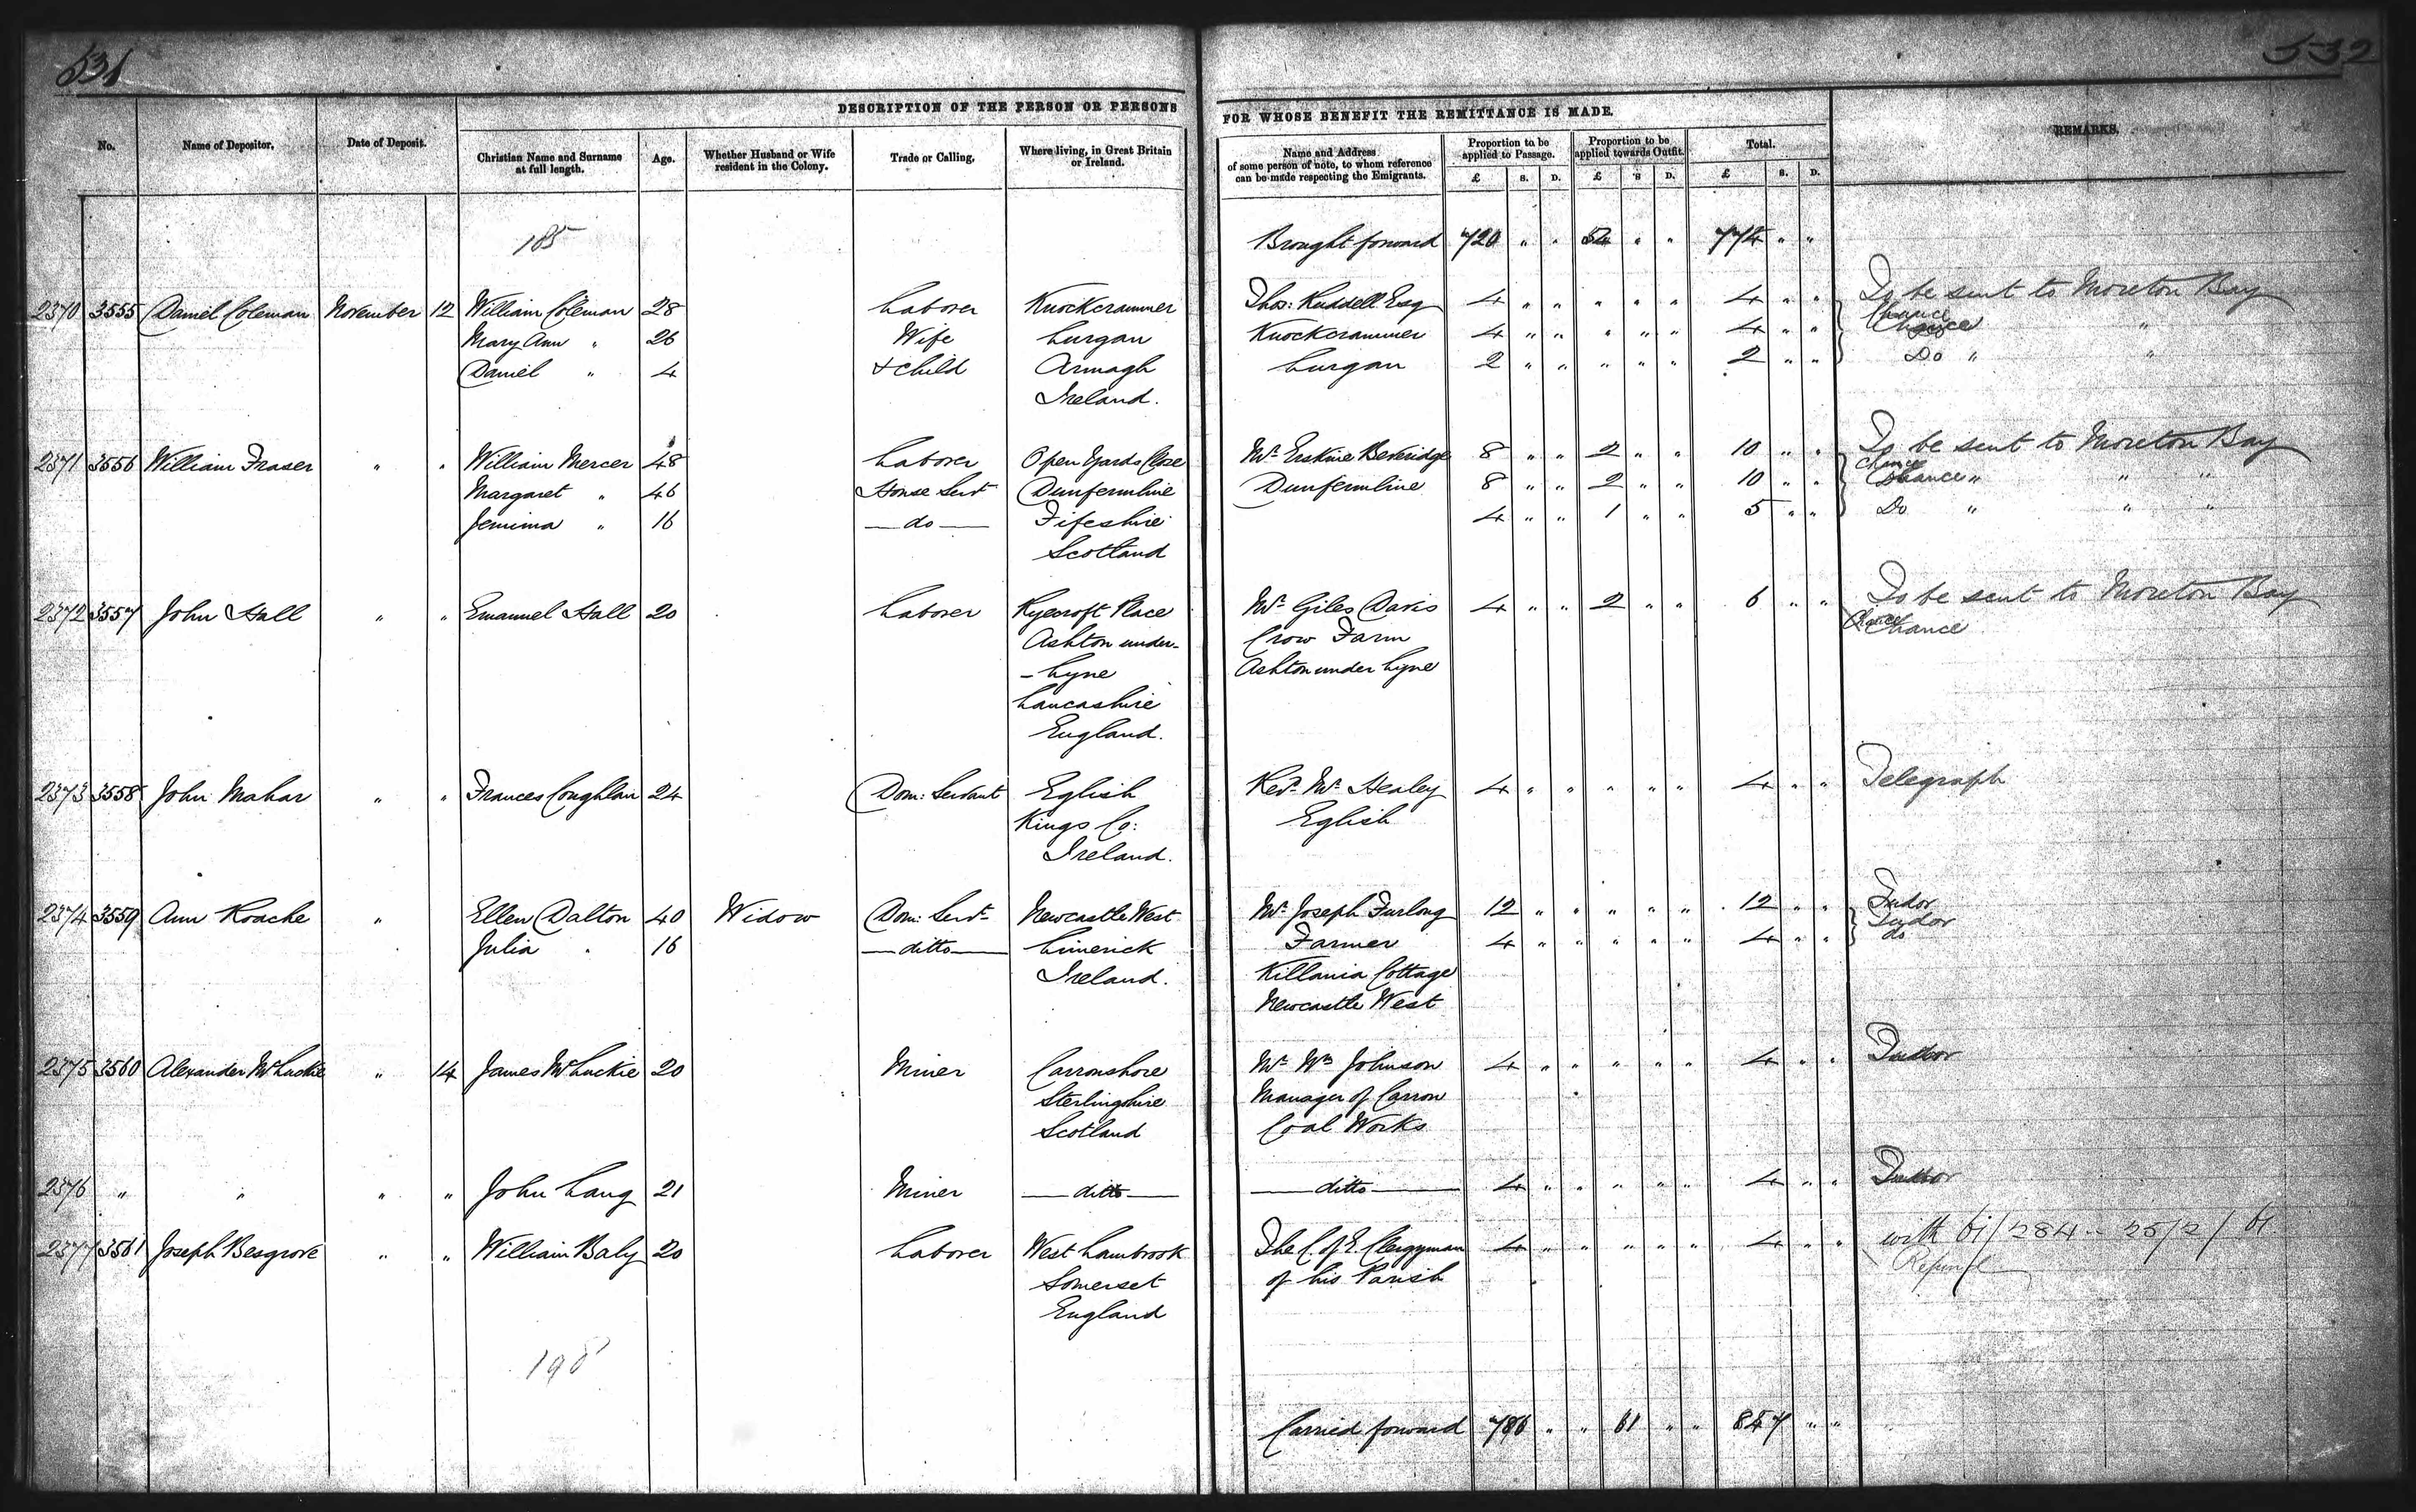 531
532
DESCRIPTION OF THE PERSON OR PERSONS
FOR WHOSE BENEFIT THE REMITTANCE IS MADE.
No. Name of Depositor. Date of Deposit. Christian Name and Surname at full length. Age. Whether Husband or Wife resident in the Colony. Trade or Calling. Where living, in Great Britain or Ireland. Name and Address of some person of note, to whom reference can be made respecting the Emigrants. Proportion to be applied to Passage. Proportion to be applied towards Outfit. Total. REMARKS.
£ S. D. £ S D. £ S. D.
185 Brought forward 720 " " 54 " " 774 " "
To be sent to Moreton Bay
2370 3555 Daniel Coleman November 12 William Coleman 28 Laborer Knockcrammer Thos: Ruddell Esq 4 " " " " " 4 " " Chance
Mary Ann " 26 Wife Lurgan Knockcrammer 4 " " " " " 4 " " Chance "
Daniel " 4 + child Armagh Lurgan 2 " " " " " 2 " " Do " "
Ireland.
To be sent to Moreton Bay
2371 3556 William Fraser " " William Mercer 48 Laborer Open Yards Close Mr. Erskine Beveridge 8 " " 2 " " 10 " " Chance
Margaret " 46 House Servt Dunfermline Dunfermline 8 " " 2 " " 10 " " Chance " " "
Jemima " 16 — do — Fifeshire 4 " " 1 " " 5 " " Do " " "
Scotland
To be sent to Moreton Bay
2372 3557 John Hall " " Emanuel Hall 20 Laborer Ryecroft Place Mr. Giles Davis 4 " " 2 " " 6 " " Chance Chance
Ashton under- Crow Farm
- Lyne Ashton under Lyne
Lancashire
England.
2373 3558 John Mahar " " Frances Coughlan 24 Dom: Servant Eglish Revd. Mr. Healey 4 " " " " " 4 " " Telegraph
Kings Co: Eglish
Ireland.
2374 3559 Ann Roache " Ellen Dalton 40 Widow Dom: Servt. Newcastle West Mr. Joseph Furlong 12 " " " " " 12 " " Tudor
Tudor
Julia " 16 — ditto — Limerick Farmer 4 " " " " " 4 " " do
Ireland. Killania Cottage
Newcastle West
2375 3560 Alexander McLuckie " 14 James McLuckie 20 Miner Carronshore Mr. Wm Johnson 4 " " " " " 4 " " Tudor
Sterlingshire Manager of Carron
Scotland Coal Works
2376 " " " " John Lang 21 Miner — ditto — — ditto — 4 " " " " " 4 " " Tudor
2377 3561 Joseph Besgrove " " William Baly 20 Laborer West Lambrook The C. of E. Clergyman 4 " " " " " 4 " " with 61/284 - 25/2/61
Somerset of his Parish Refund
England
198
Carried forward 786 " " 61 " " 847 " "